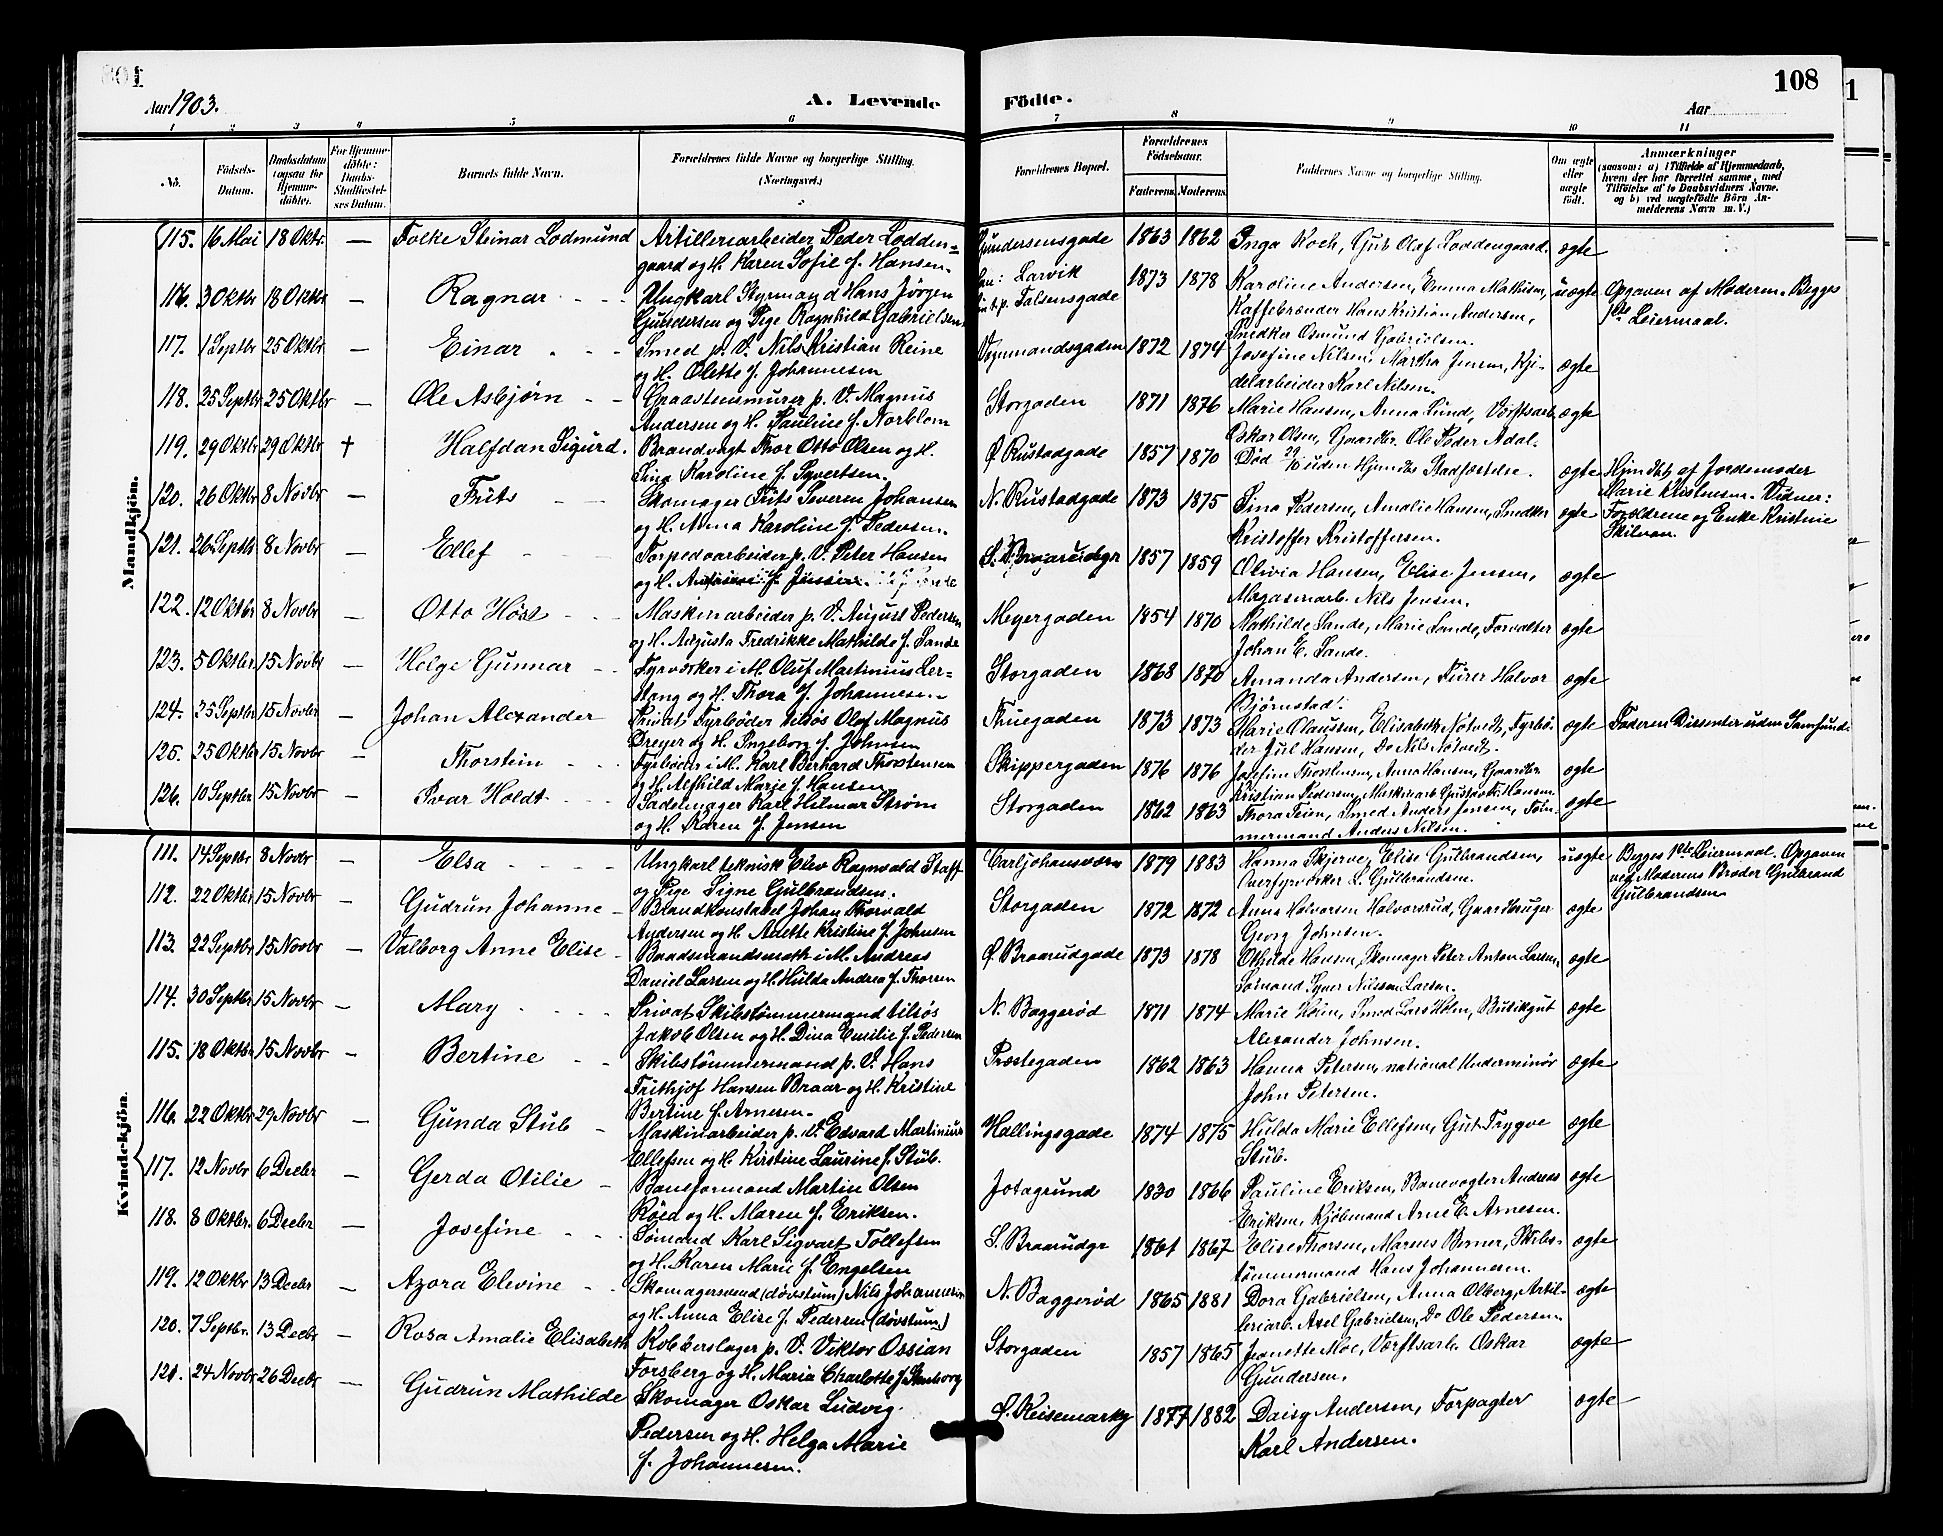 108
Aar 1903.
A. Levende Födte.
Aar
1 2 3 4 5 6 7 8 9 10 11
No.
Födsels-Datum.
Daabsdatum (ogsaa for Hjemmedöbte).
For Hjemmedöbte: Daabs-Stadfæstelses Datum.
Barnets fulde Navn.
Forældrenes fulde Navne og borgerlige Stilling. (Næringsvei.)
Forældrenes Bopæl.
Forældrenes Födselsaar.
Faderens. Moderens.
Faddernes Navne og borgerlige Stilling.
Om ægte eller uægte födt.
Anmærkninger
(saasom: a) i Tilfælde af Hjemmedaab,
hvem der har forrettet samme, med
Tilföielse af to Daabsvidners Navne.
og b) ved uægtefödte Börn An-
melderens Navn m. V.)
Mandkjön.
115. 16 Mai 18 Oktr. — Folke Steinar Lodmund Artilleriarbeider Peder Lodden= Gundersensgade 1863 1862 Inga Koch, Gut Olaf Loddengaard. ægte
gaard og H. Karen Sofie f. Hansen.
116. 3 Oktbr 18 Oktbr — Ragnar Ungkarl Styrmand Hans Jörgen Larvik 1873 1878 Karoline Andersen, Emma Mathisen, uægte Opgaven af Moderen. Begges
Gundersen og Pige Ragnhild Gabrielsen Falsensgade Kaffebrænder Hans Kristian Andersen, 1ste Leiermaal.
Snedker Osmund Gabrielsen.
117. 1 Septbr 25 Oktbr — Einar Smed p. V. Nils Kristian Reine Vognmandsgaden 1872 1874 Josefine Nilsen, Martha Jensen, Kje- ægte
og H. Olette f. Johannesen delarbeider Karl Nilsen.
118. 25 Septbr 25 Oktbr — Ole Asbjørn Graastensmurer p. V. Magnus Storgaden 1871 1876 Marie Hansen, Anna Lund, Værftsarb. ægte
Andersen og H. Pauline f. Norblom Oskar Olsen, Gaardbr. Ole Peder Adal.
119. 29 Oktbr 29 Oktbr † Halfdan Sigurd. Brandvagt Thor Otto Olsen og H. Ø Rustadgade 1857 1870 Död 29/10 uden Hjmdbs Stadfæstelse. ægte Hjmdbt af Jordemoder
Lina Karoline f. Syvertsen. Marie Kristensen. Vidner:
120. 26 Oktbr 8 Novbr — Frits Skomager Frits Severen Johansen N. Rustadgade 1873 1875 Sina Pedersen, Amalie Hansen, Snedker ægte Forældrene og Enke Kristine
og H. Anna Karoline f. Pedersen. Kristoffer Kristoffersen.
121. 26 Septbr 8 Novbr — Ellef Torpedoarbeider p. V. Peter Hansen S. Braarudgr 1857 1859 Olivia Hansen, Elise Jensen, ægte
og H. Magasinarb. Nils Jensen.
122. 12 Oktbr 8 Novbr — Otto Höst Maskinarbeider p. V. August Pedersen Meyergaden 1854 1870 Mathilde Sande, Marie Sande, Forvalter ægte
og H. Augusta Fredrikke Mathilde f. Sande Johan E. Sande.
123. 5 Oktbr. 15 Novbr — Helge Gunnar Fyrvørker i M. Oluf Martinius Ler- Storgaden 1868 1870 Amanda Andersen, Furer Halvor ægte
stang og H. Thora f. Johannesen. Bjørnstad.
124. 25 Septbr 15 Novbr — Johan Alexander Privat Fyrbøder tilsös Olaf Magnus Thuegaden 1873 1873 Marie Olaussen, Elisabeth Nötvedt, Fyrbö- ægte Faderen Dissenter uden Samfund.
Dreyer og H. Ingeborg f. Johnsen der Jul Hansen, Do Nils Nötvedt.
125. 25 Oktbr 15 Novbr — Thorstein Fyrbøder i M. Karl Berhard Thorstensen Skippergaden 1876 1876 Josefine Thorstensen, Anna Hansen, Gaardbr. ægte
og H. Alfhild Marie f. Hansen Kristian Pedersen, Maskinarb Gustav Hansen
126. 10 Septbr 15 Novbr — Ivar Holdt Sadelmager Karl Hilmar Strøm Storgaden 1862 1863 Thora Teien, Smed Anders Jensen, Töm- ægte
og H. Karen f. Jensen mermand Anders Nilsen.
Kvindekjön.
111. 14 Septbr 8 Novbr — Elsa Ungkarl teknisk Elev Ragnvald Staff Carljohansværn 1879 1883 Hanna Skjerve, Elise Gulbrandsen, uægte Begges 1ste Leiermaal. Opgaven
og Pige Signe Gulbrandsen. Overfyrvørker L. Gulbrandsen. ved Moderens Broder Gulbrand
Gulbrandsen
112. 22 Oktbr 15 Novbr — Gudrun Johanne Brandkonstabel Johan Thorvald Storgaden 1872 1872 Anna Halvorsen Halvorsrud, Gaardbruger ægte
Andersen og H. Anette Kristine f. Johnsen Georg Johnsen.
113. 22 Septbr 15 Novbr — Valborg Anne Elise Baadsmandsmath i M. Andreas Ø. Braarudgade 1873 1878 Othilde Hansen, Skomager Peter Anton Larsen, ægte
Daniel Larsen og H. Hulda Andrea f. Thoresen Sömand Syver Nilssen Larsen.
114. 30 Septbr 15 Novbr — Mary Privat Skibstømmermand tilsös N. Baggerød 1871 1874 Marie Holm, Smed Lars Holm, Butikgut ægte
Jakob Olsen og H. Dina Emilie f. Pedersen Alexander Johnsen.
115. 18 Oktbr 15 Novbr — Bertine Skibstømmermand p. V. Hans Præstegaden 1862 1863 Hanna Petersen, national Underminör ægte
Frithjof Hansen Braar og H. Kristine John Petersen.
Bertine f. Arnesen.
116. 22 Oktbr 29 Novbr — Gunda Stub Maskinarbeider p. V. Edvard Martinius Hallingsgade 1874 1875 Hulda Marie Ellefsen, Gut Trygve ægte
Ellefsen og H. Kirstine Laurine f. Stub. Stub.
117. 12 Novbr 6 Decbr — Gerda Otilie Baneformand Martin Olsen Jotagrund 1830 1866 Pauline Eriksen, Banevogter Andreas ægte
Röed og H. Maren f. Eriksen. Eriksen, Kjöbmand Arne E. Arnesen.
118. 8 Oktbr. 6 Decbr — Josefine Sömand Karl Sigvart Tollefsen S. Braarudgr 1861 1867 Elise Thorsen, Marius Berner, Skibs- ægte
og H. Karen Marie f. Engelsen tömmermand Hans Johannesen.
119. 12 Oktbr 13 Decbr — Azora Elevine Skomagersvend (dövstum) Nils Johannesen N. Baggerød 1865 1881 Dora Gabrielsen, Anna Olberg, Artil- ægte
og H. Anna Elise f. Pedersen (dövstum) leriarb. Axel Gabrielsen, Do Ole Pedersen.
120. 7 Septbr. 13 Decbr — Rosa Amalie Elisabeth Kobberslager p. V. Viktor Ossian Storgaden 1857 1865 Jeanette Moe, Værftsarb. Oskar ægte
Forsberg og H. Maria Charlotte f. Gundersen.
121. 24 Novbr 26 Decbr — Gudrun Mathilde Skomager Oskar Ludvig Ø. Keisemarkg 1877 1882 Daisy Andersen, Forpagter ægte
Pedersen og H. Helga Marie Karl Andersen.
f. Johannesen.